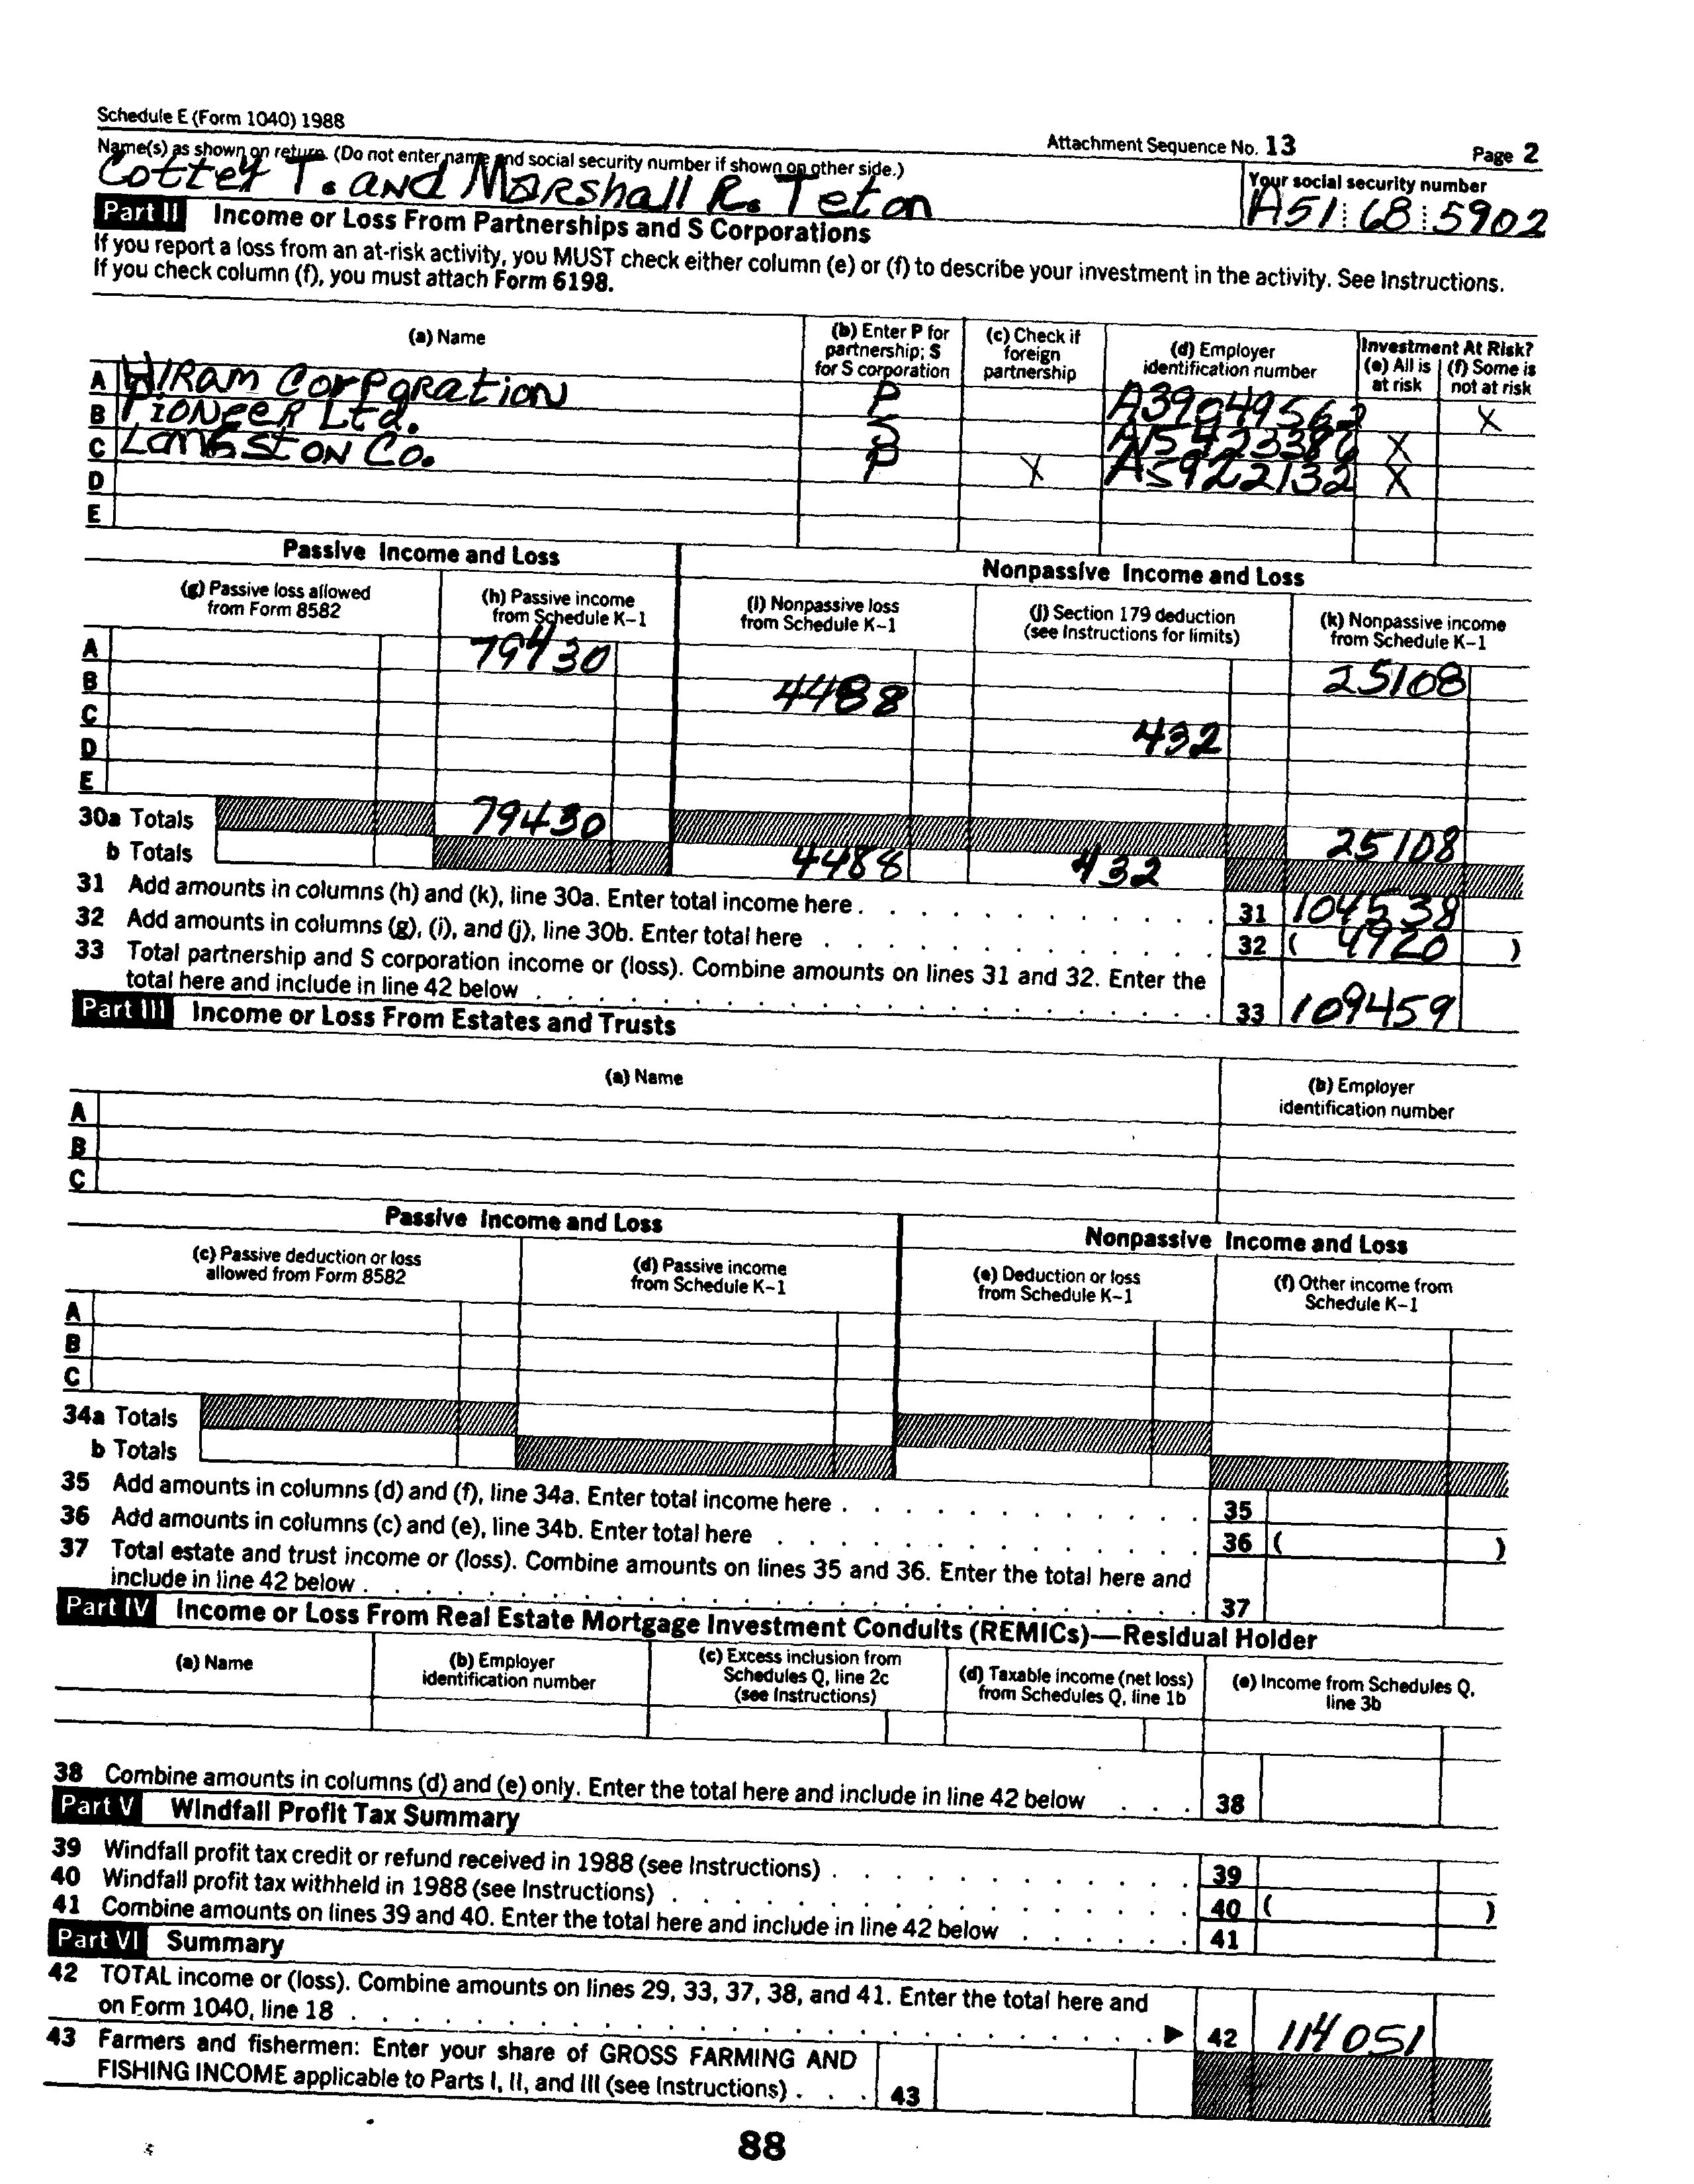 Schedule E (Form 1040) 1988
Attachment Sequence No. 13
Page 2
Name(s) as shown on return. (Do not enter name and social security number if shown on other side.)
Your social security number
T. and Marshall R. Teton
A51 68 5902
Part II Income or Loss From Partnerships and S Corporations
If you report a loss from an at-risk activity, you MUST check either column (e) or (f) to describe your investment in the activity. See Instructions.
If you check column (f), you must attach Form 6198.
(a) Name
(b) Enter P for partnership; S for S corporation
(c) Check if foreign partnership
(d) Employer identification number
Investment At Risk?
(e) All is at risk
(f) Some is not at risk
A Hiram Corporation P A39049562 X
B Pioneer Ltd. S A15423386 X
C Langston Co. P X A5922132 X
D
E
Passive Income and Loss
Nonpassive Income and Loss
(g) Passive loss allowed from Form 8582
(h) Passive income from Schedule K-1
(i) Nonpassive loss from Schedule K-1
(j) Section 179 deduction (see Instructions for limits)
(k) Nonpassive income from Schedule K-1
A 79430 25108
B 4488
C 432
D
E
30a Totals 79430 25108
b Totals 4488 432
31 Add amounts in columns (h) and (k), line 30a. Enter total income here . . . 31 104538
32 Add amounts in columns (g), (i), and (j), line 30b. Enter total here . . . 32 ( 4920 )
33 Total partnership and S corporation income or (loss). Combine amounts on lines 31 and 32. Enter the
total here and include in line 42 below . . . 33 109459
Part III Income or Loss From Estates and Trusts
(a) Name
(b) Employer identification number
A
B
C
Passive Income and Loss
Nonpassive Income and Loss
(c) Passive deduction or loss allowed from Form 8582
(d) Passive income from Schedule K-1
(e) Deduction or loss from Schedule K-1
(f) Other income from Schedule K-1
A
B
C
34a Totals
b Totals
35 Add amounts in columns (d) and (f), line 34a. Enter total income here . . . 35
36 Add amounts in columns (c) and (e), line 34b. Enter total here . . . 36 ( )
37 Total estate and trust income or (loss). Combine amounts on lines 35 and 36. Enter the total here and
include in line 42 below . . . 37
Part IV Income or Loss From Real Estate Mortgage Investment Conduits (REMICs)—Residual Holder
(a) Name
(b) Employer identification number
(c) Excess inclusion from Schedules Q, line 2c (see Instructions)
(d) Taxable income (net loss) from Schedules Q, line 1b
(e) Income from Schedules Q, line 3b
38 Combine amounts in columns (d) and (e) only. Enter the total here and include in line 42 below . . . 38
Part V Windfall Profit Tax Summary
39 Windfall profit tax credit or refund received in 1988 (see Instructions) . . . 39
40 Windfall profit tax withheld in 1988 (see Instructions) . . . 40 ( )
41 Combine amounts on lines 39 and 40. Enter the total here and include in line 42 below . . . 41
Part VI Summary
42 TOTAL income or (loss). Combine amounts on lines 29, 33, 37, 38, and 41. Enter the total here and
on Form 1040, line 18 . . . ▶ 42 114051
43 Farmers and fishermen: Enter your share of GROSS FARMING AND
FISHING INCOME applicable to Parts I, II, and III (see Instructions) . . . 43
88